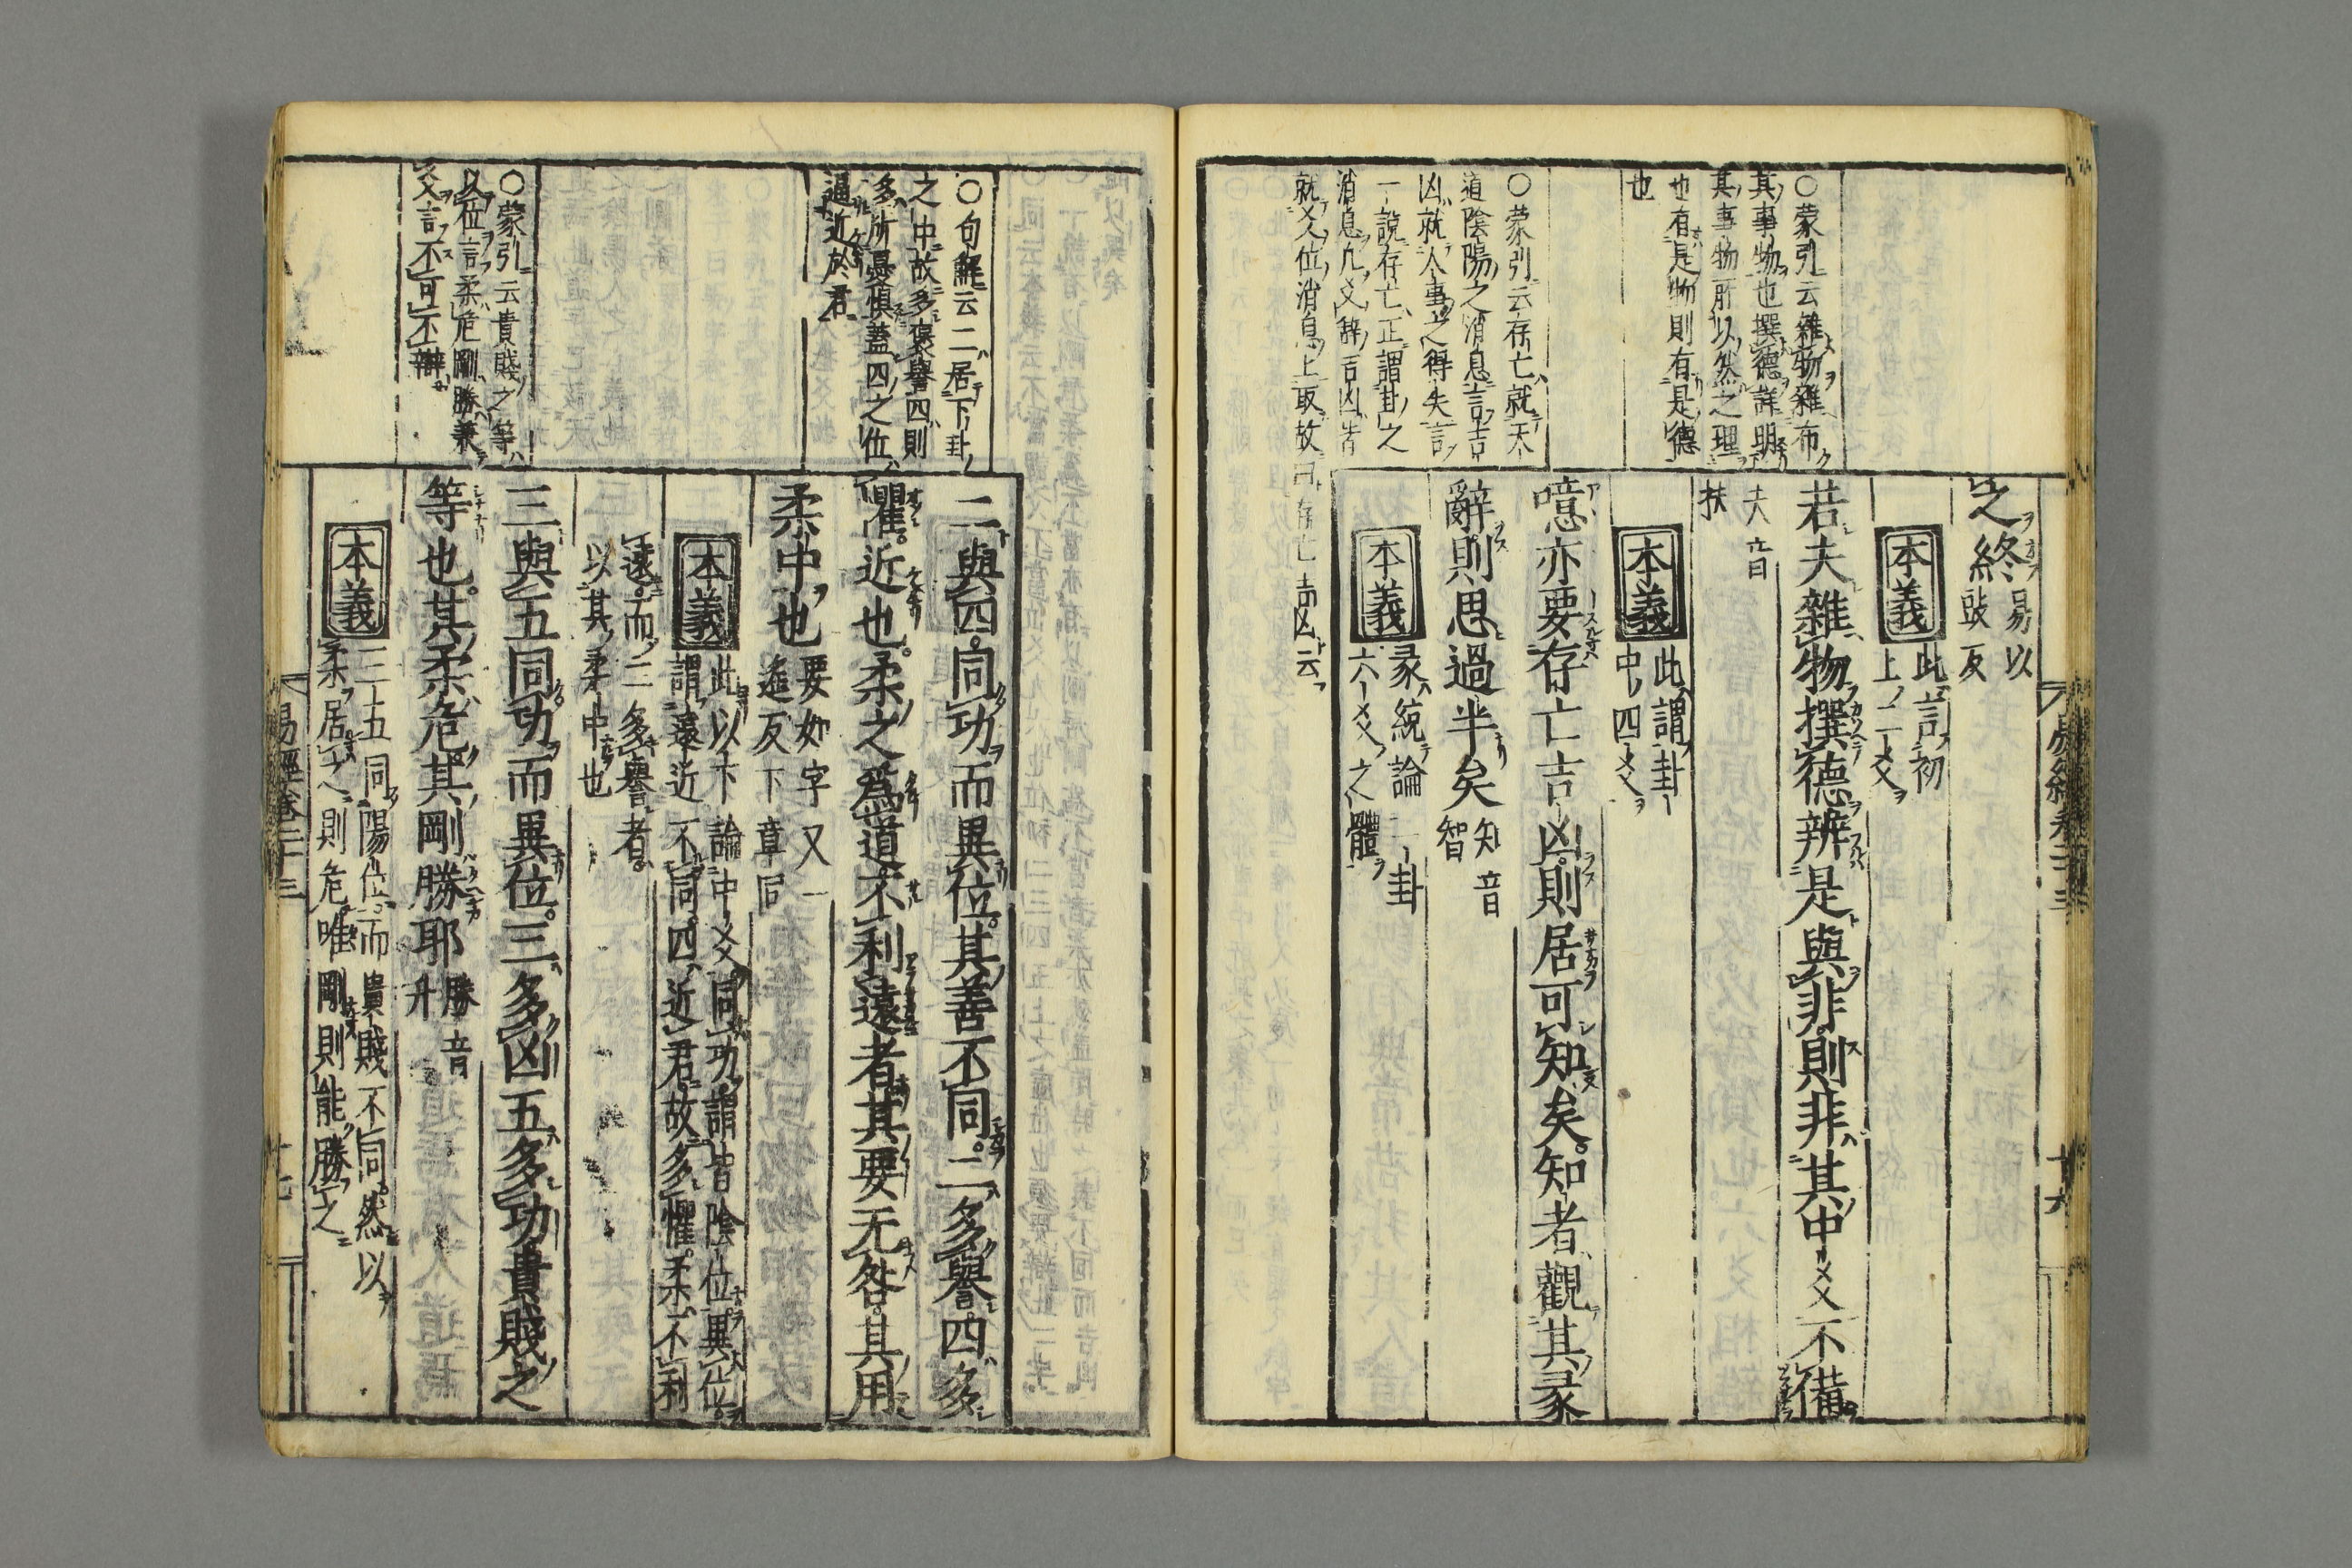 之終
易以
豉反
本義
此言初
上二爻
若夫雜物撰德辨是與非則非其中爻不備
夫音
扶
本義
此謂卦
中四爻
噫亦要存亡吉凶則居可知矣知者觀其彖
辭則思過半矣
知音
智
本義
彖統論一卦
六爻之體
○蒙引云雜物雜布
其事物也撰德詳明
其事物所以然之理
也有是物則有是德
也
○蒙引云存亡就天
道陰陽之消息言吉
凶就人事之得失言
一說存亡正謂卦之
消息凡爻辭吉凶皆
就爻位消息上取故曰存亡吉凶云
易經卷二十三
十六
二與四同功而異位其善不同二多譽四多
懼近也柔之爲道不利遠者其要无咎其用
柔中也
要如字又一
遙反下章同
本義
此以下論中爻同功謂皆陰位異位
謂遠近不同四近君故多懼柔不利
遠而二多譽者
以其柔中也
三與五同功而異位三多凶五多功貴賤之
等也其柔危其剛勝耶
勝音
升
本義
三五同陽位而貴賤不同然以
柔居之則危唯剛則能勝之
○句解云二居下卦
之中故多褒譽四則
多所憂懼蓋四之位
逼近於君
○蒙引云貴賤之等
以位言柔危剛勝兼
爻言不可不辯
易經卷二十三
十七